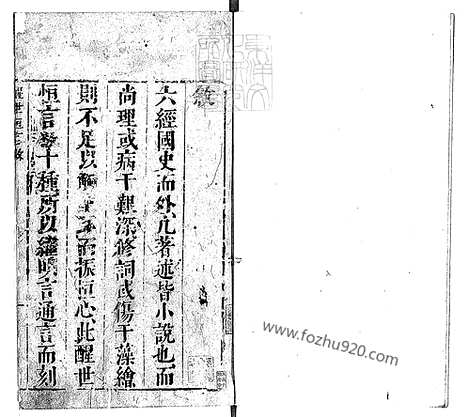 敘
六經國史而外凡著述皆小說也而
尚理或病于艱深修詞或傷于藻繪
則不足以觸里耳而振恒心此醒世
恒言四十種所以繼明言通言而刻
醒世恒言敘
www.fozhu920.com